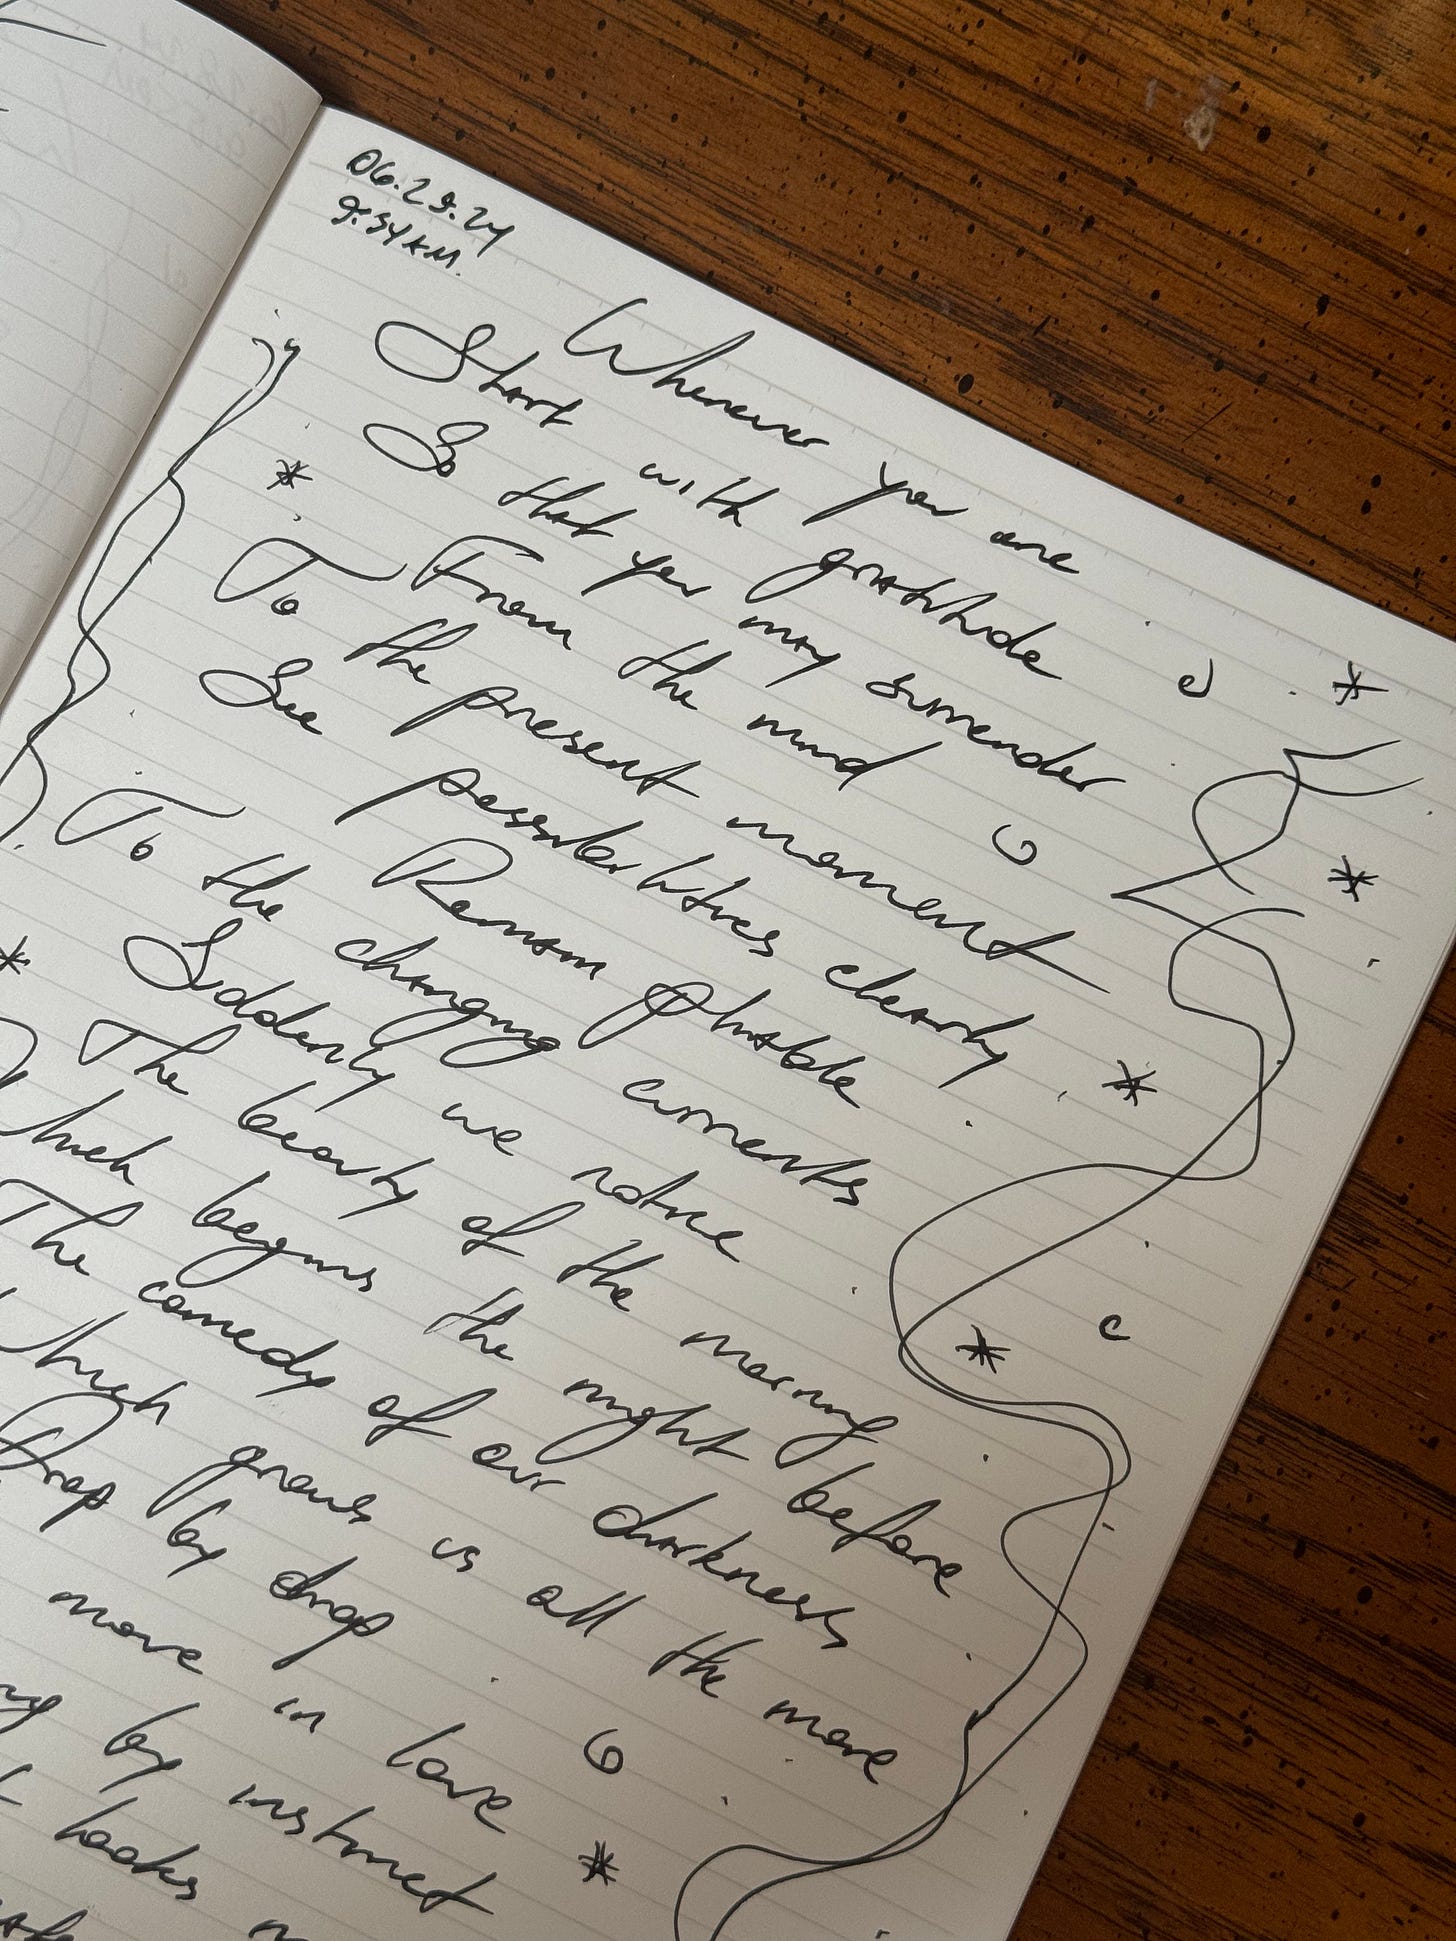 06.29.24
9:54 A.M.
Wherever you are
Start with gratitude
So that you may surrender
From the mind
To the present moment
See possibilities clearly
Remain pliable
To the changing currents
Suddenly we notice
The beauty of the morning
Which begins the night before
The comedy of our darkness
Which grows us all the more
Drop by drop
move in love
by instinct
looks